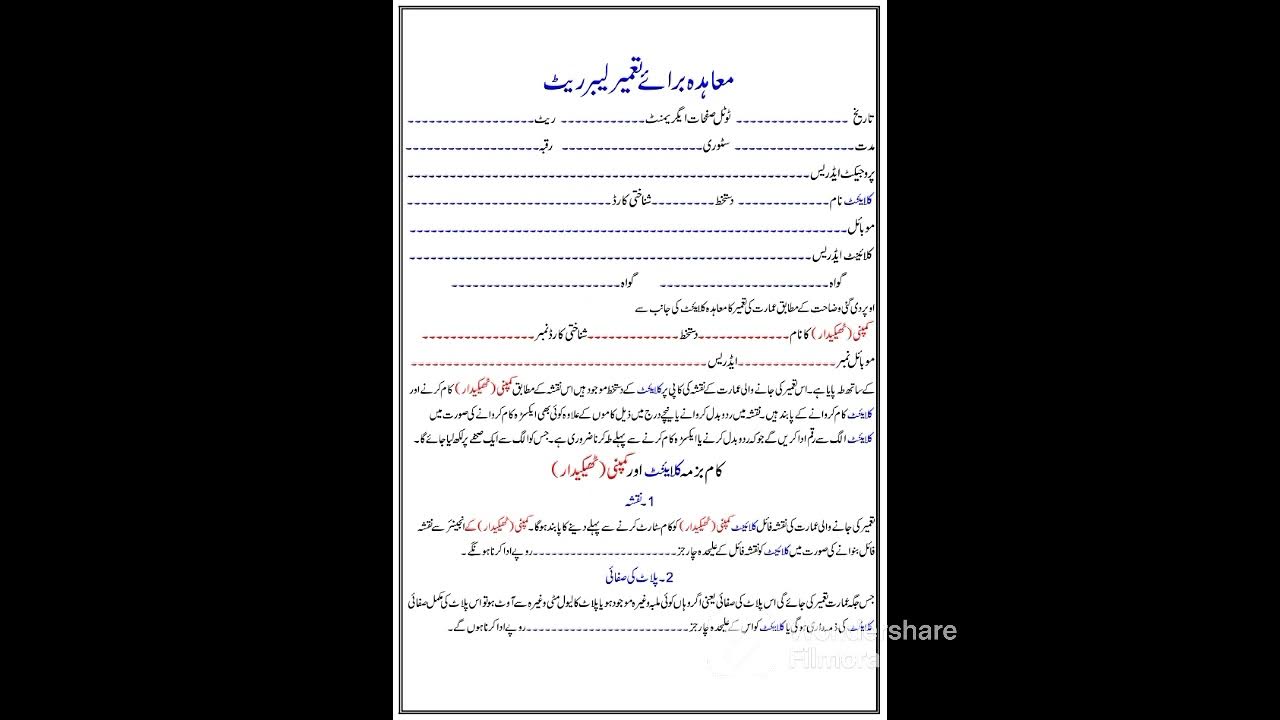 معاہدہ برائے تعمیر لیبر ریٹ
تاریخ ---------------- ٹوٹل صفحات ایگریمنٹ------------ ریٹ------------------
مدت----------------- سٹوری-------------------- رقبہ-------------------
پروجیکٹ ایڈریس---------------------------------------------------------
کلائنٹ نام------------- دستخط---------شناختی کارڈ-----------------------------
موبائل--------------------------------------------------------------
کلائنٹ ایڈریس---------------------------------------------------------
گواہ------------------------ گواہ------------------------
اوپر دی گئی وضاحت کے مطابق عمارت کی تعمیر کا معاہدہ کلائنٹ کی جانب سے
کمپنی (ٹھیکیدار) کا نام-------------دستخط-------------شناختی کارڈ نمبر----------------
موبائل نمبر--------------ایڈریس------------------------------------------
کے ساتھ طہ پایا ہے۔ اس تعمیر کی جانے والی عمارت کے نقشہ کی کاپی پر کلائنٹ کے دستخط موجود ہیں اس نقشہ کے مطابق کمپنی (ٹھیکیدار) کام کرنے اور
کلائنٹ کام کروانے کے پابند ہیں۔ نقشہ میں ردوبدل کروانے یا نیچے درج میں ذیل کاموں کے علاوہ کوئی بھی ایکسڑہ کام کروانے کی صورت میں
کلائنٹ الگ سے رقم ادا کریں گے جو کہ ردوبدل کرنے یا ایکسڑہ کام کرنے سے پہلے طہ کرنا ضروری ہے۔ جس کو الگ سے ایک صفحے پر لکھ لیا جائے گا۔
کام بزمہ کلائنٹ اور کمپنی (ٹھیکیدار)
1۔ نقشہ
تعمیر کی جانے والی عمارت کی نقشہ فائل کلائنٹ کمپنی (ٹھیکیدار) کو کام سٹارٹ کرنے سے پہلے دینے کا پابند ہوگا۔ کمپنی (ٹھیکیدار) کے انجینئر سے نقشہ
فائل بنوانے کی صورت میں کلائنٹ کو نقشہ فائل کے علیحدہ چارجز---------------------روپے ادا کرنا ہونگے۔
2۔ پلاٹ کی صفائی
جس جگہ عمارت تعمیر کی جائے گی اس پلاٹ کی صفائی یعنی اگر وہاں کوئی ملبہ وغیرہ موجود ہو یا پلاٹ کا لیول مٹی وغیرہ سے آوٹ ہو تو اس پلاٹ کی مکمل صفائی
کلائنٹ کی ذمہ داری ہوگی یا کلائنٹ کو اس کے علیحدہ چارجز-----------------------روپے ادا کرنا ہوں گے۔
Wondershare
Filmora